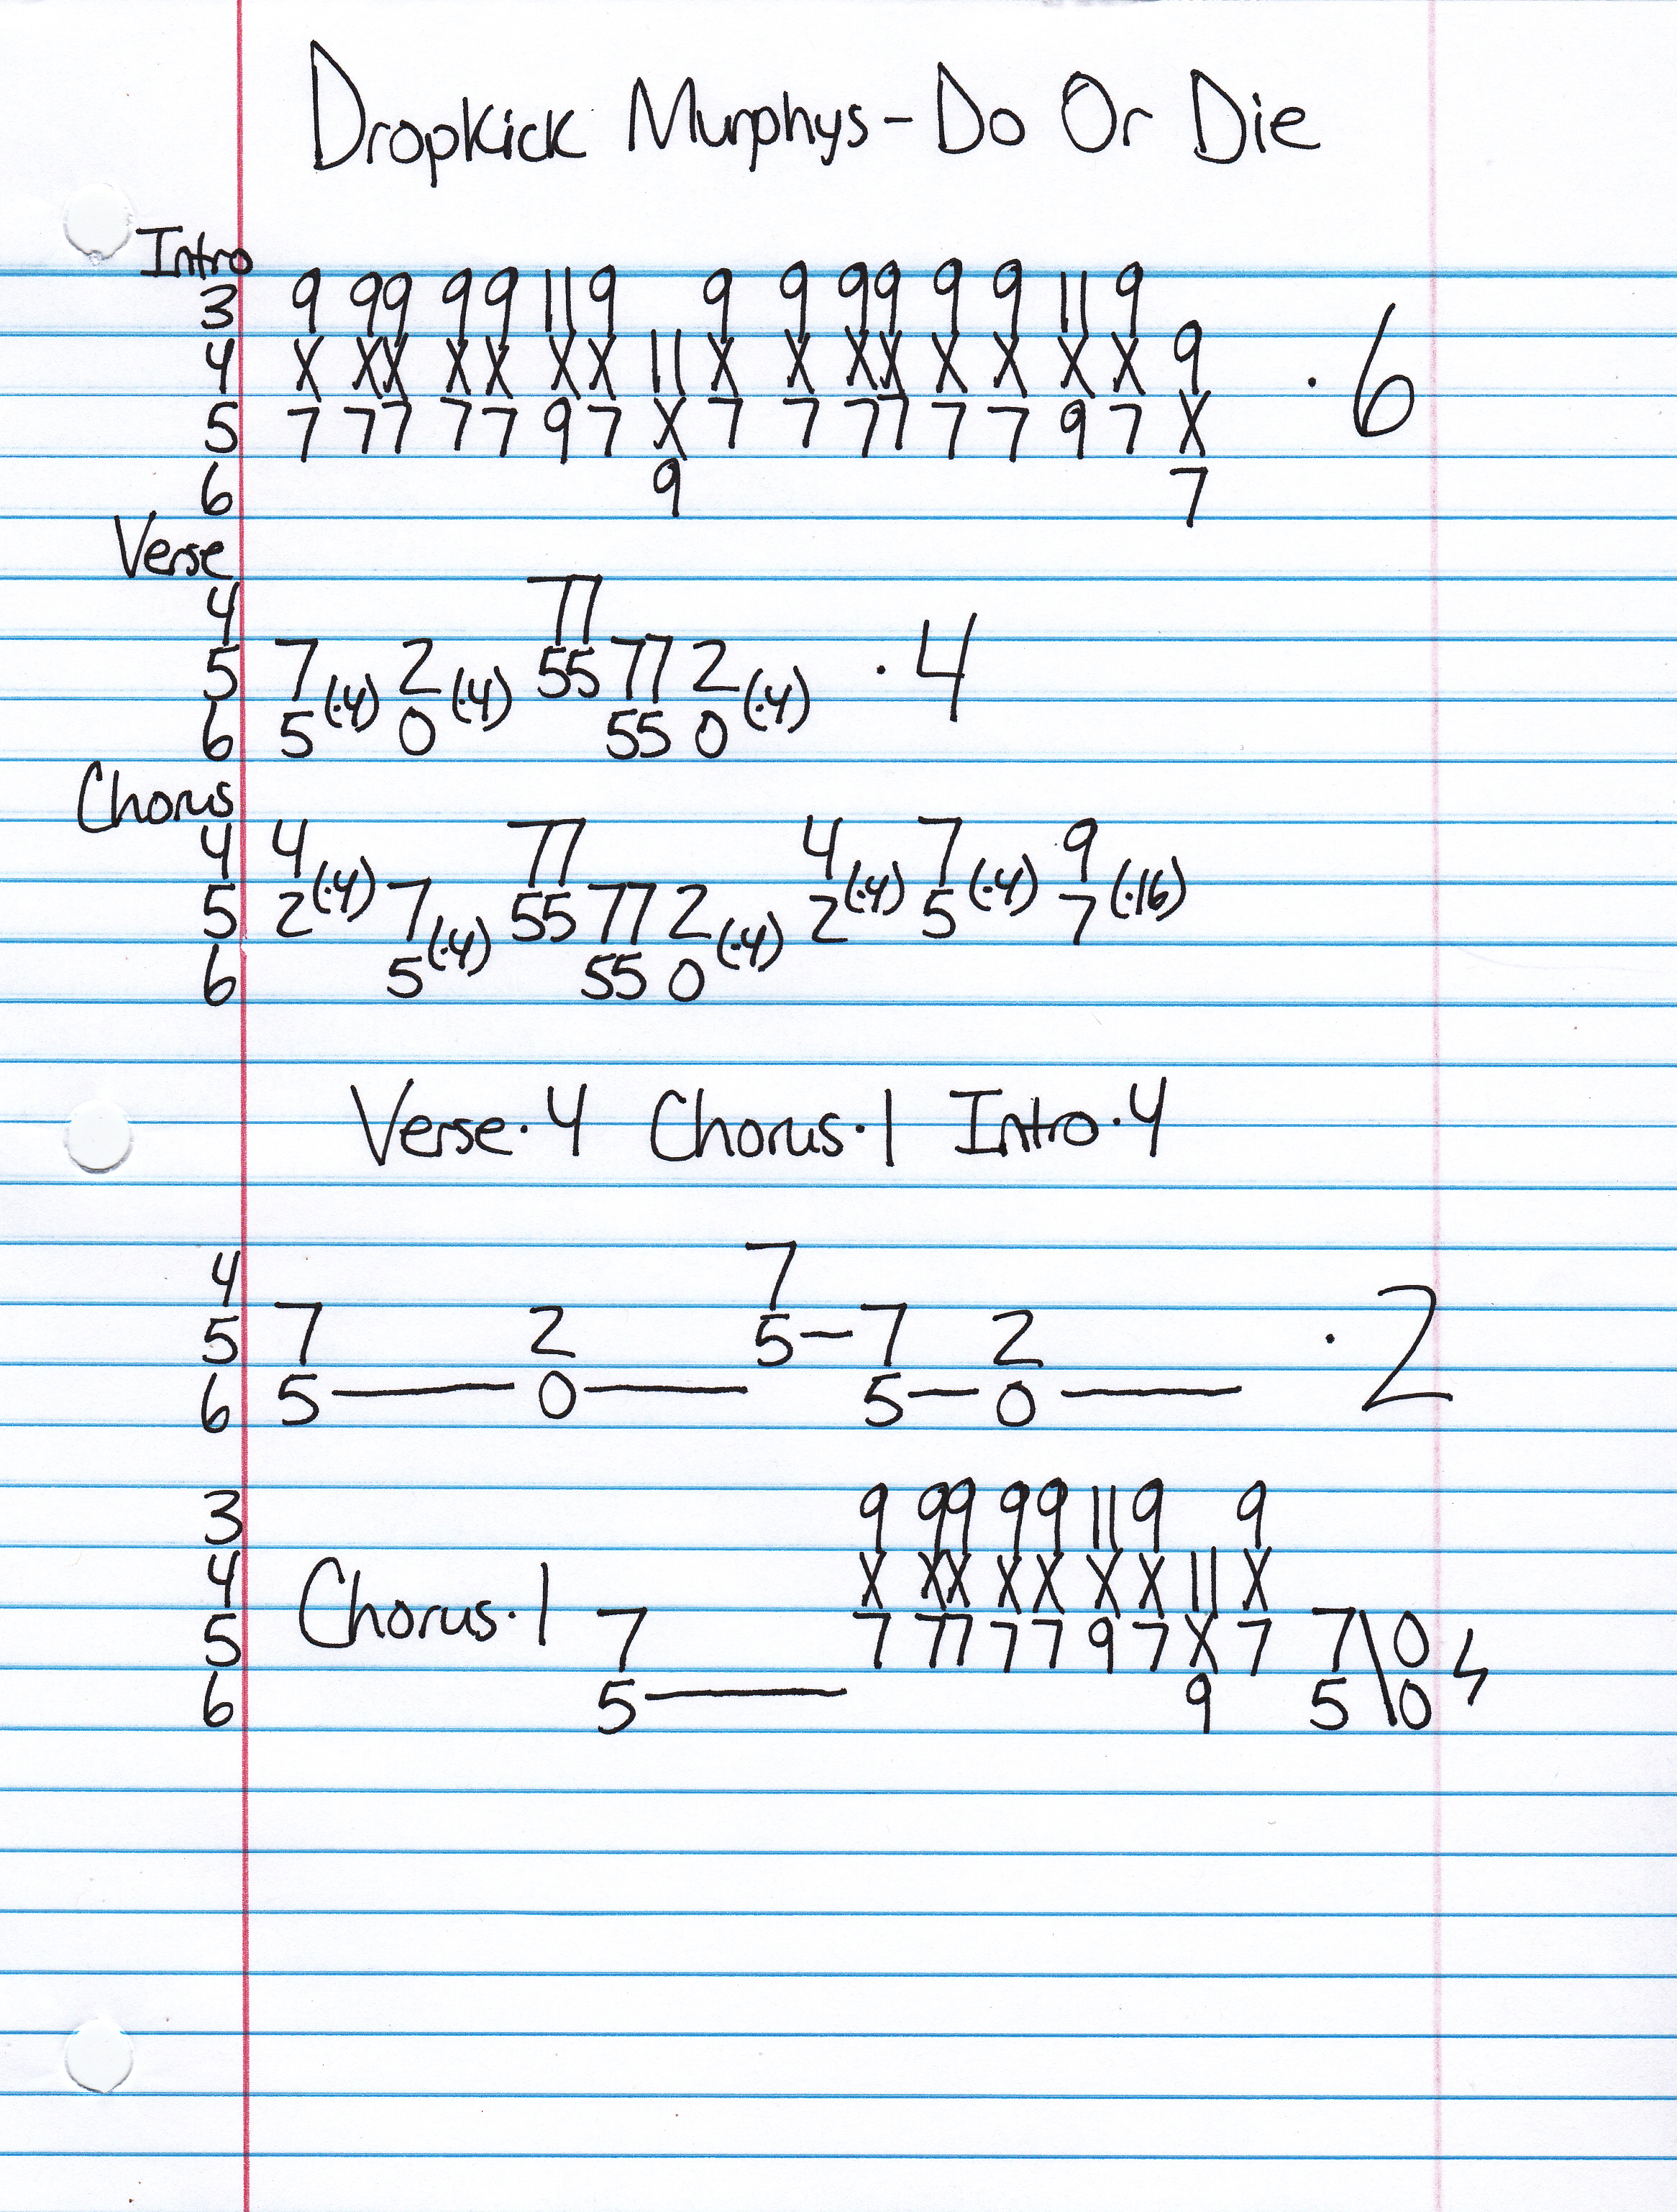 Dropkick Murphys - Do Or Die
Intro
3 9 99 99 119 9 9 99 9 9 11 9
4 X XX XX XX 11 X X XX X X X X 9 · 6
5 7 77 77 97 X 7 7 77 7 7 9 7 X
6 9 7
Verse
4 77
5 7 (·4) 2 (·4) 55 77 2 (·4) · 4
6 5 0 55 0
Chorus
4 4 77 4 7 9
5 2 (·4) 7 55 77 2 2 (·4) 5 (·4) 7 (·16)
6 5 (·4) 55 0 (·4)
Verse·4 Chorus·1 Intro·4
4 7
5 7 2 5–7 2 · 2
6 5 — 0 — 5 – 0 —
3 9 99 99 119 9
4 X XX XX XX 11 X
5 Chorus·1 7 7 77 77 97 X 7 7\0
6 5 — 9 5\0